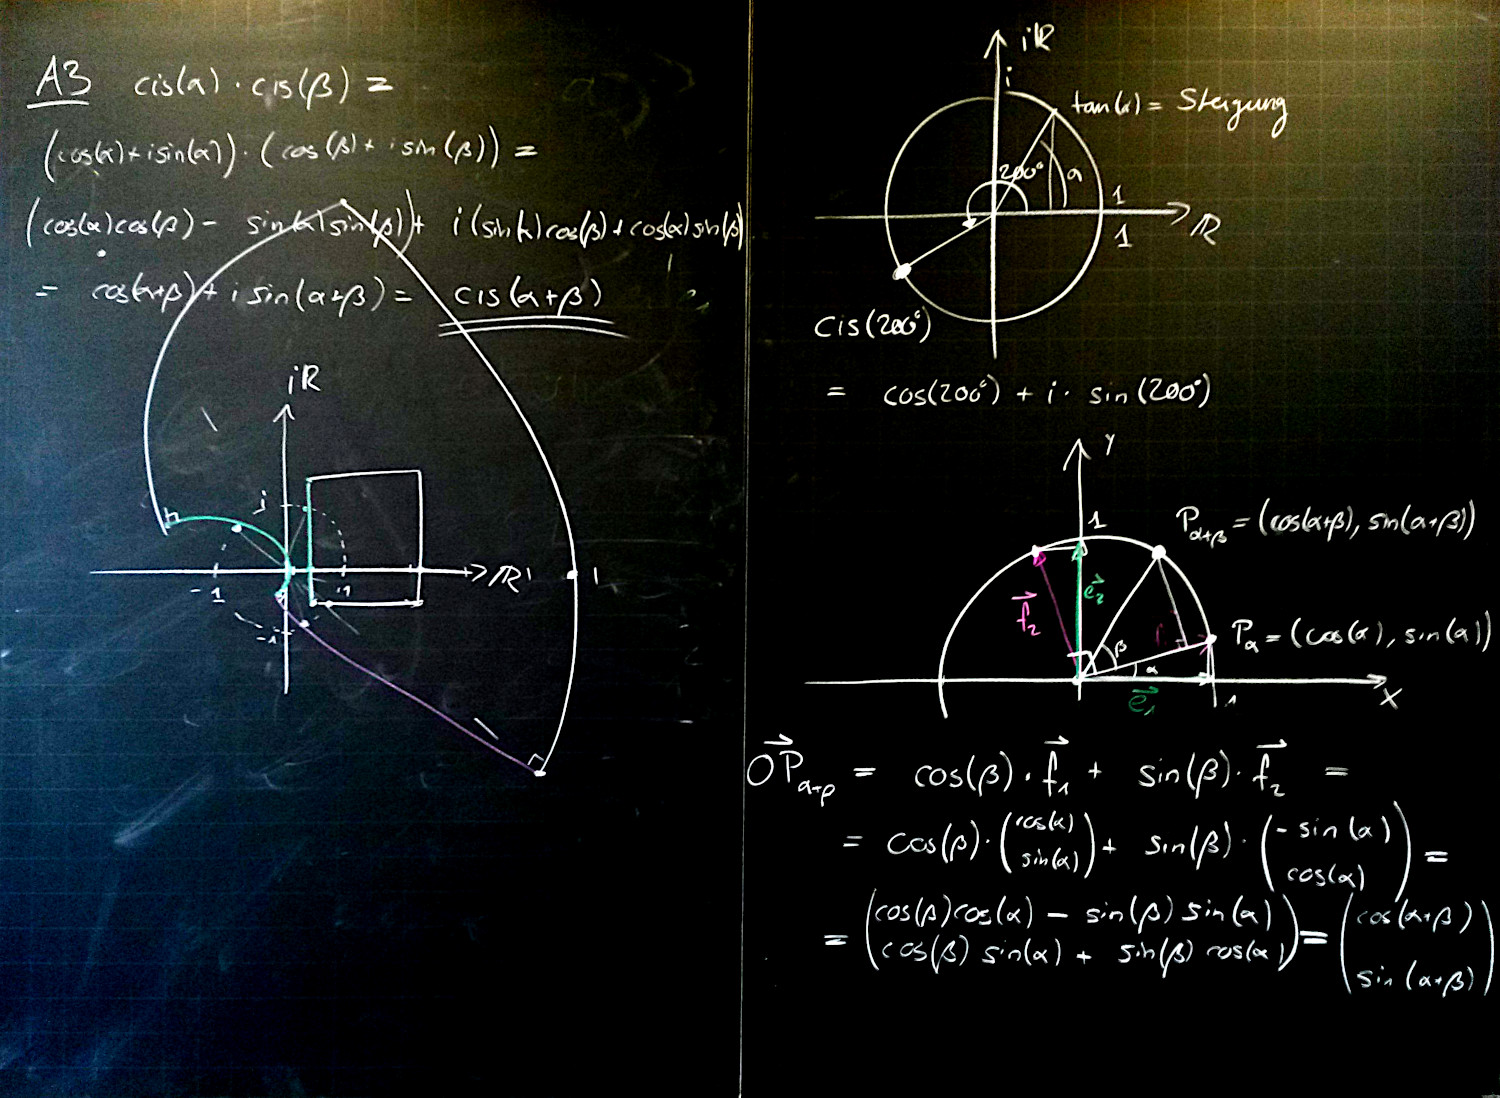 A3 cis(α) · cis(β) =
(cos(α)+isin(α)) · (cos(β)+isin(β)) =
(cos(α)cos(β) - sin(α)sin(β)) + i(sin(α)cos(β)+cos(α)sin(β))
= cos(α+β) + i sin(α+β) = cis(α+β)
iR
i
-1
1
R
1
-i
iR
i
tan(α) = Steigung
200°
α
1
1
R
cis(200°)
= cos(200°) + i · sin(200°)
y
1
P_{α+β} = (cos(α+β), sin(α+β))
f₂
e₂
β
α
P_α = (cos(α), sin(α))
e₁
1
x
OP_{α+β} = cos(β) · f₁ + sin(β) · f₂ =
= cos(β) · (cos(α) sin(α)) + sin(β) · (-sin(α) cos(α)) =
= (cos(β)cos(α) - sin(β)sin(α) cos(β)sin(α) + sin(β)cos(α)) = (cos(α+β) sin(α+β))